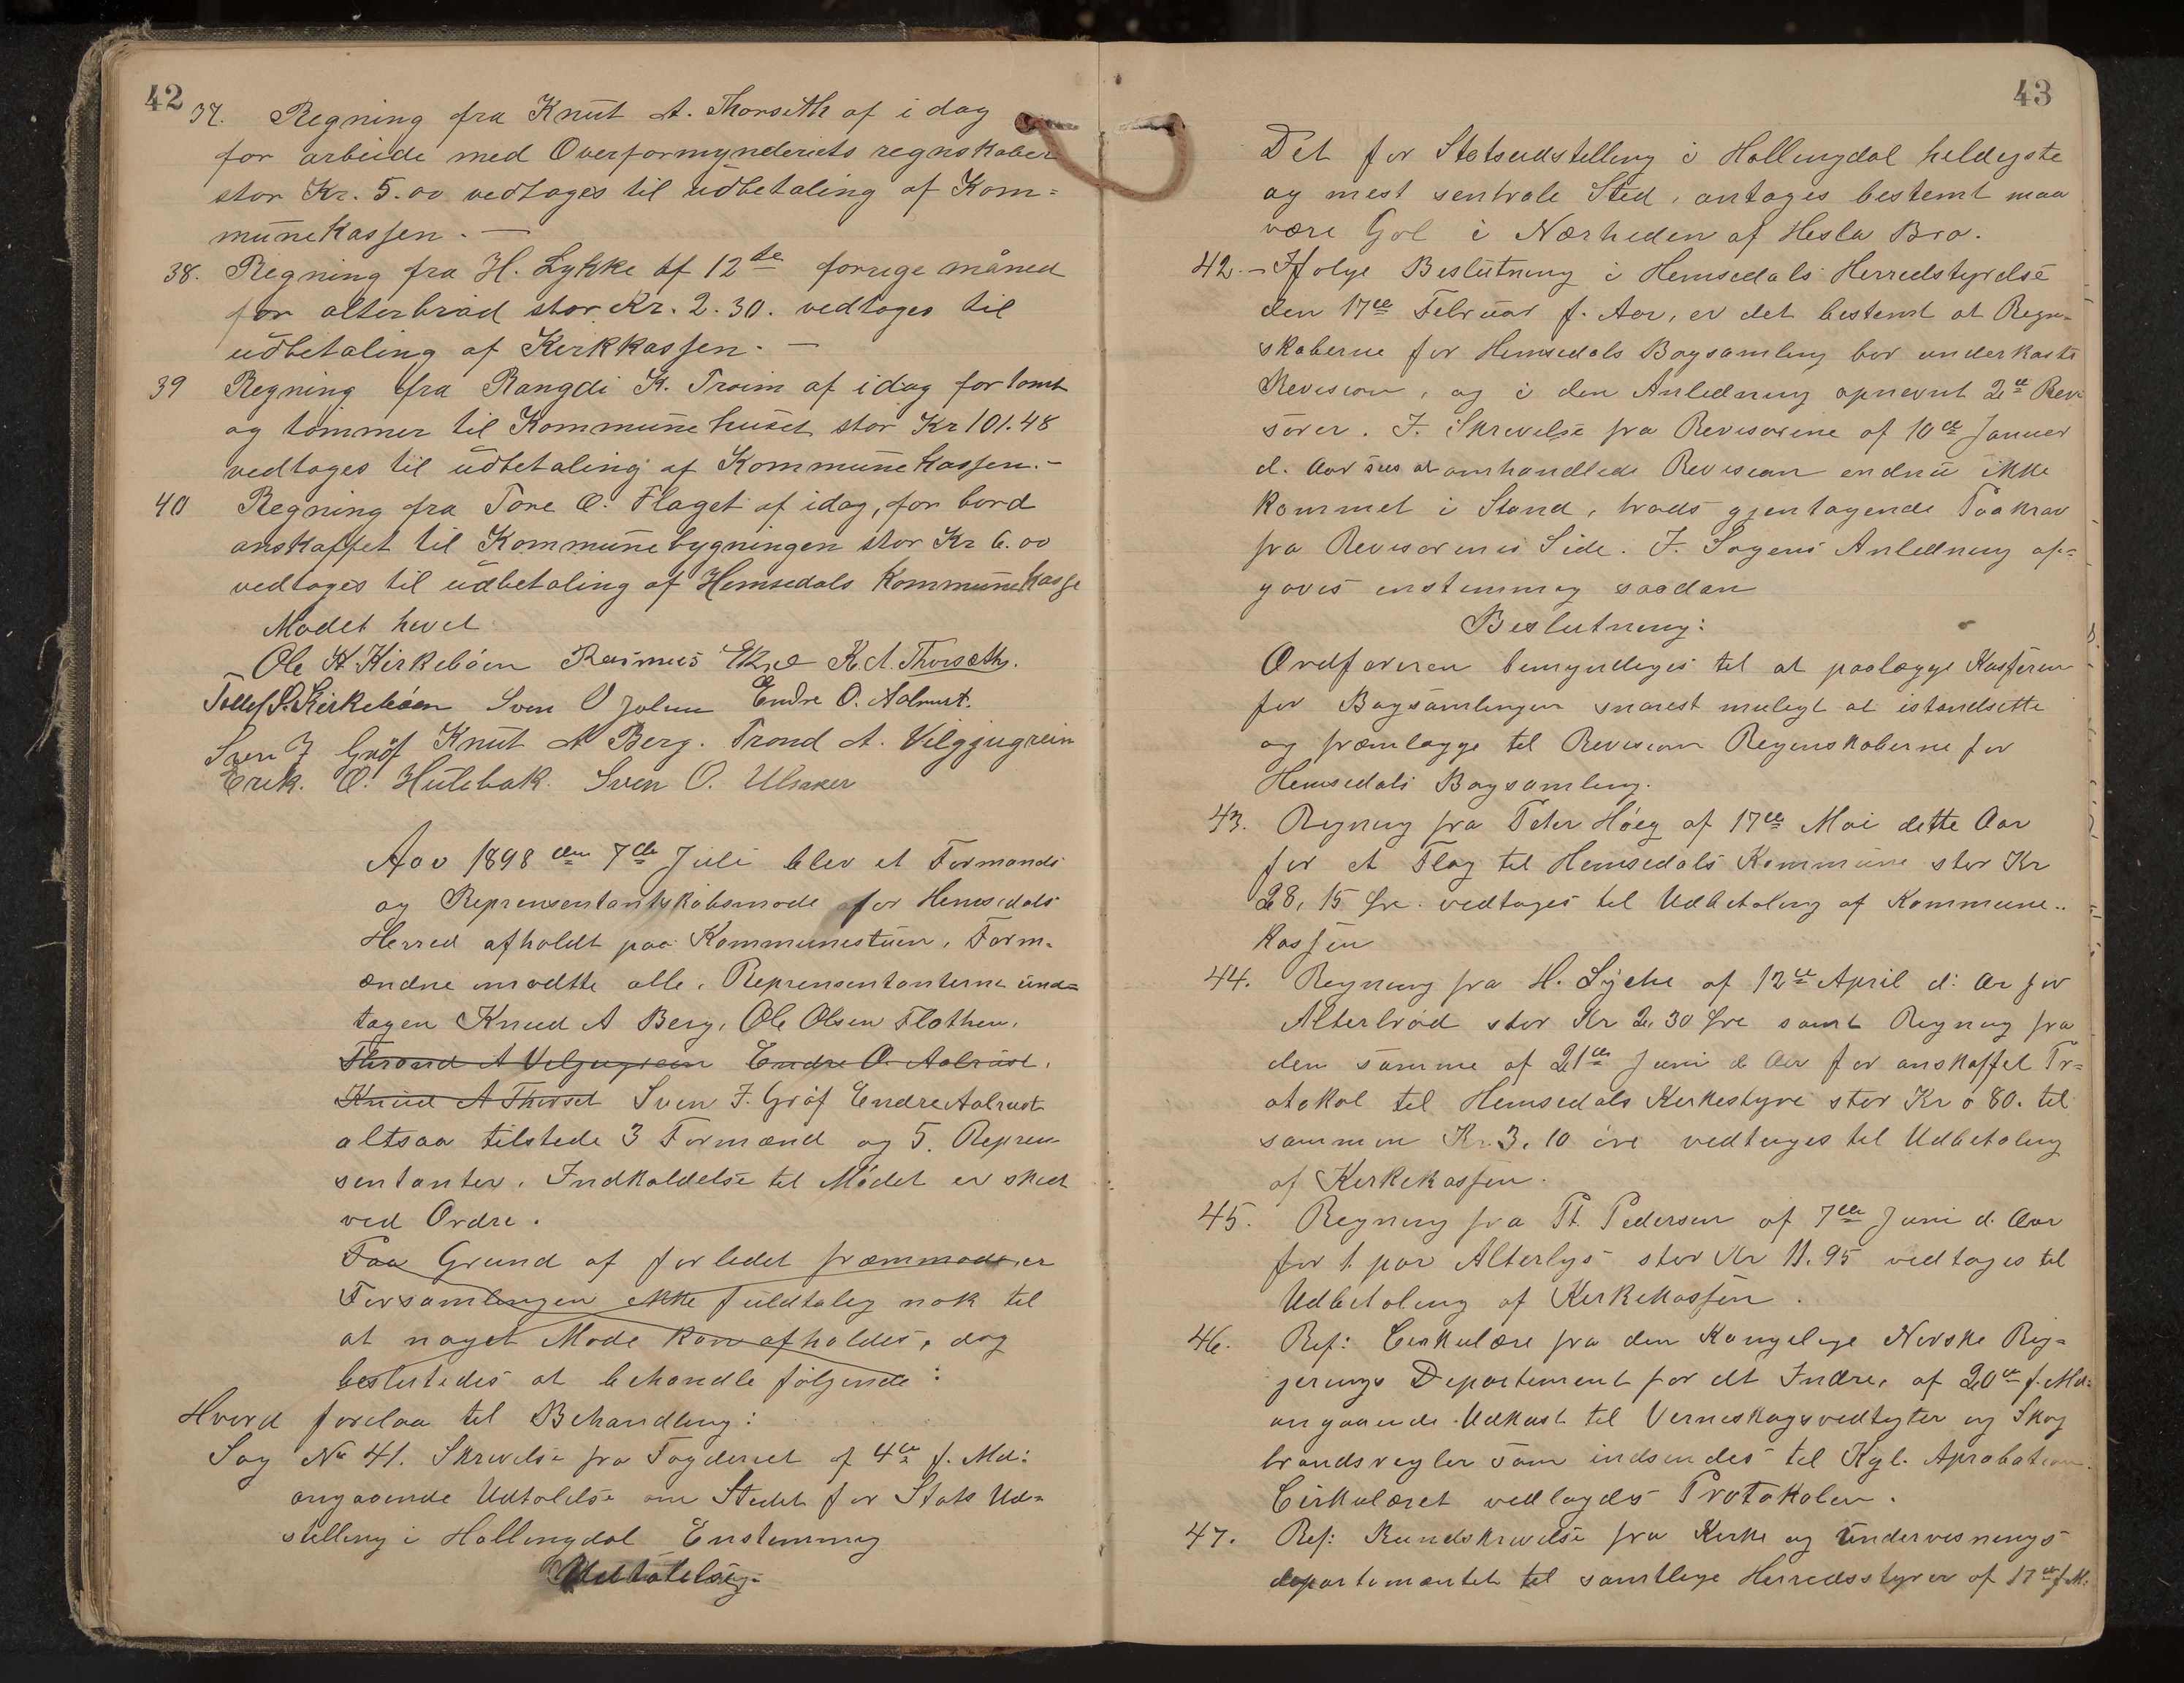 42
37. Regning fra Knut A. Thorseth af i dag
for arbeide med Overformynderiets regnskaber
stor Kr. 5.00 vedtages til udbetaling af Kom=
munekassen. —
38. Regning fra H. Lykke af 12te forrige måned
for alterbrød stor Kr. 2.30. vedtages til
udbetaling af Kirkkassen. —
39 Regning fra Rangdi K. Troim af idag for tomt
og tømmer til Kommunehuset stor Kr 101.48
vedtages til udbetaling af Kommunekassen.-
40 Regning fra Tore O. Flaget af idag, for bord
anskaffet til Kommunebygningen stor Kr 6.00
vedtages til udbetaling af Hemsedals Kommunekasse
Mødet hevet
Ole K. Kirkebøen Rasmus Ekre K. A. Thorseth.
Tollef O. Kirkebøen Sven O Jolun Endre O. Aalrust.
Sven J Grøf Knut A Berg. Trond A. Vilgjugrein
Erik. O. Hulebak. Sven O. Ulsaker
Aar 1898 den 7de Juli blev et Formands
og Reprensentantskabsmøde for Hemsedals
Herred afholdt paa Kommunestuen, Form-
ændne mødtte alle, Reprensentanterne und=
tagen Knud A Berg, Ole Olsen Flathen,
Thrond A Velgugrein Endre O. Aalrust,
Knud A Thorset Sven J. Grøf Endre Aalrust
altsaa tilstede 3 Formænd og 5. Repren-
sentanter. Indkaldelse til Mødet er skeet
ved Ordre.
Paa Grund af forledet fræmmøde, er
Forsamlingen ikke fuldtalig nok til
at noget Møde kan afholdes, dog
besluttedes at behandle følgende:
Hvord forelaa til Behandling:
Sag No 41. Skrivelse fra Fogderiet af 4de f. Md:
angaaende Udtalelse om Stedet for Stats Ud=
stilling i Hallingdal Enstemmig
Udtalelse:
43
Det for Statsudstilling i Hallingdal heldigste
og mest sentrale Sted, antages bestemt maa
være Gol i Nærheden af Hesla Bro.
42. - Ifølge Beslutning i Hemsedals Herredstyrelse
den 17de Februar f. Aar, er det bestemt at Regn-
skaberne for Hemsedals Bogsamling bør underkaste
Revision, og i den Anledning opnevnt 2de Revi
sorer. I. Skrivelse fra Revisorene af 10de Januar
d. Aar sees at omhandlede Revision endnu ikke
kommet i Stand, trods gjentagende Paakrav
fra Revisorenes Side. I. Sagens Anledning af=
gaves enstemmig saadan
Beslutning:
Ordføreren bemyndiges til at paalægge Kasseren
for Bogsamlingen snarest muligt at istandsætte
og fræmlægge til Revision Regnskaberne for
Hemsedals Bogsamling.
43. Regning fra Peter Høeg af 17de Mai dette Aar
for et Flag til Hemsedals Kommune stor Kr
28, 15 Øre. vedtages til Udbetaling af Kommune..
kassen
44. Regning fra H. Lycke af 12te April d: Ar for
Alterbrød stor Kr 2, 30 Øre samt Regning fra
den samme af 21de Juni d Aar for anskaffet Pr=
otokol til Hemsedals Kirkestyre stor Kr 0 80. til
sammen Kr. 3, 10 øre vedtages til Udbetaling
af Kirkekassen.
45. Regning fra Pt. Pedersen af 7de Juni d. Aar
for 1 par Alterlys stor Kr 11.95 vedtages til
Udbetaling af Kirkekassen.
46. Ref: Cirkulære fra den Kongelige Norske Reg=
jerings Departement for det Indre, af 20de f. Md:
angaaende Udkast til Verneskogsvedtægter og Skog
brandsregler som indsendes til Kgl. Aprobation.
Cirkulæret vedlagdes Protokolen.
47. Ref: Rundskrivelse fra Kirke og Undervisnings
departementet til samtlige Herredsstyrer af 17de f. M.